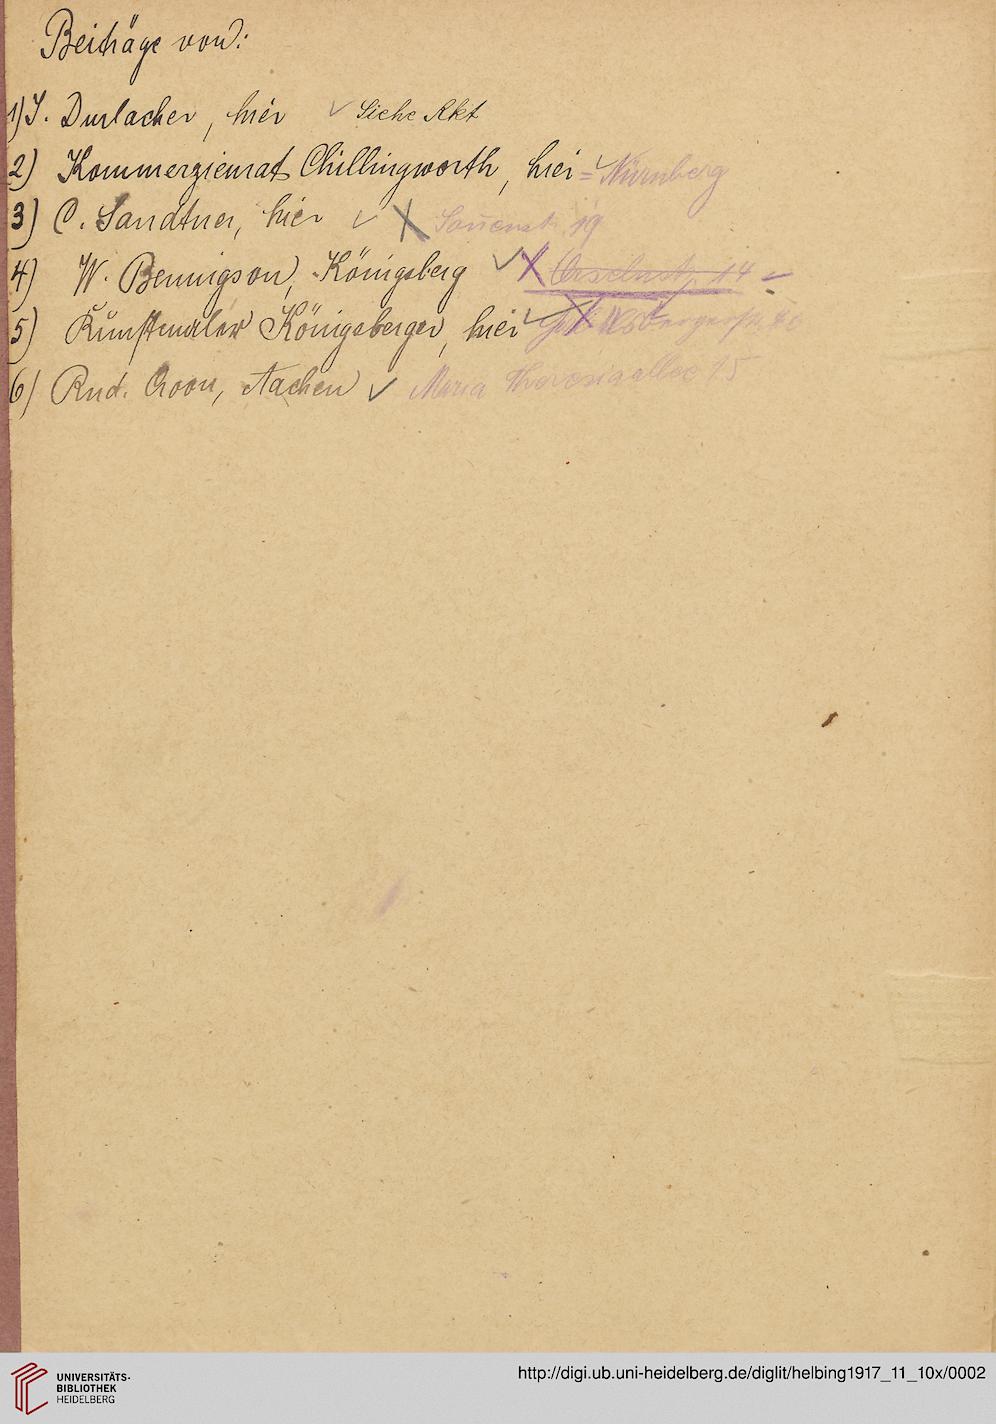 Beiträge von:
1) J. Durlacher, hier ✓ Siehe Akt
2) Kommerzienrat Chillingworth, hier = ✓ Nürnberg
3) C. Sandtner, hier ✓ X 19
4) W. Bennigson, Königsberg ✓ X 14 –
5) Kunstmaler Königsberger, hier ✓ X
6) Rud. Croon, Aachen ✓ Maria Theresiaallee 15
UNIVERSITÄTS-
BIBLIOTHEK
HEIDELBERG
http://digi.ub.uni-heidelberg.de/diglit/helbing1917_11_10x/0002